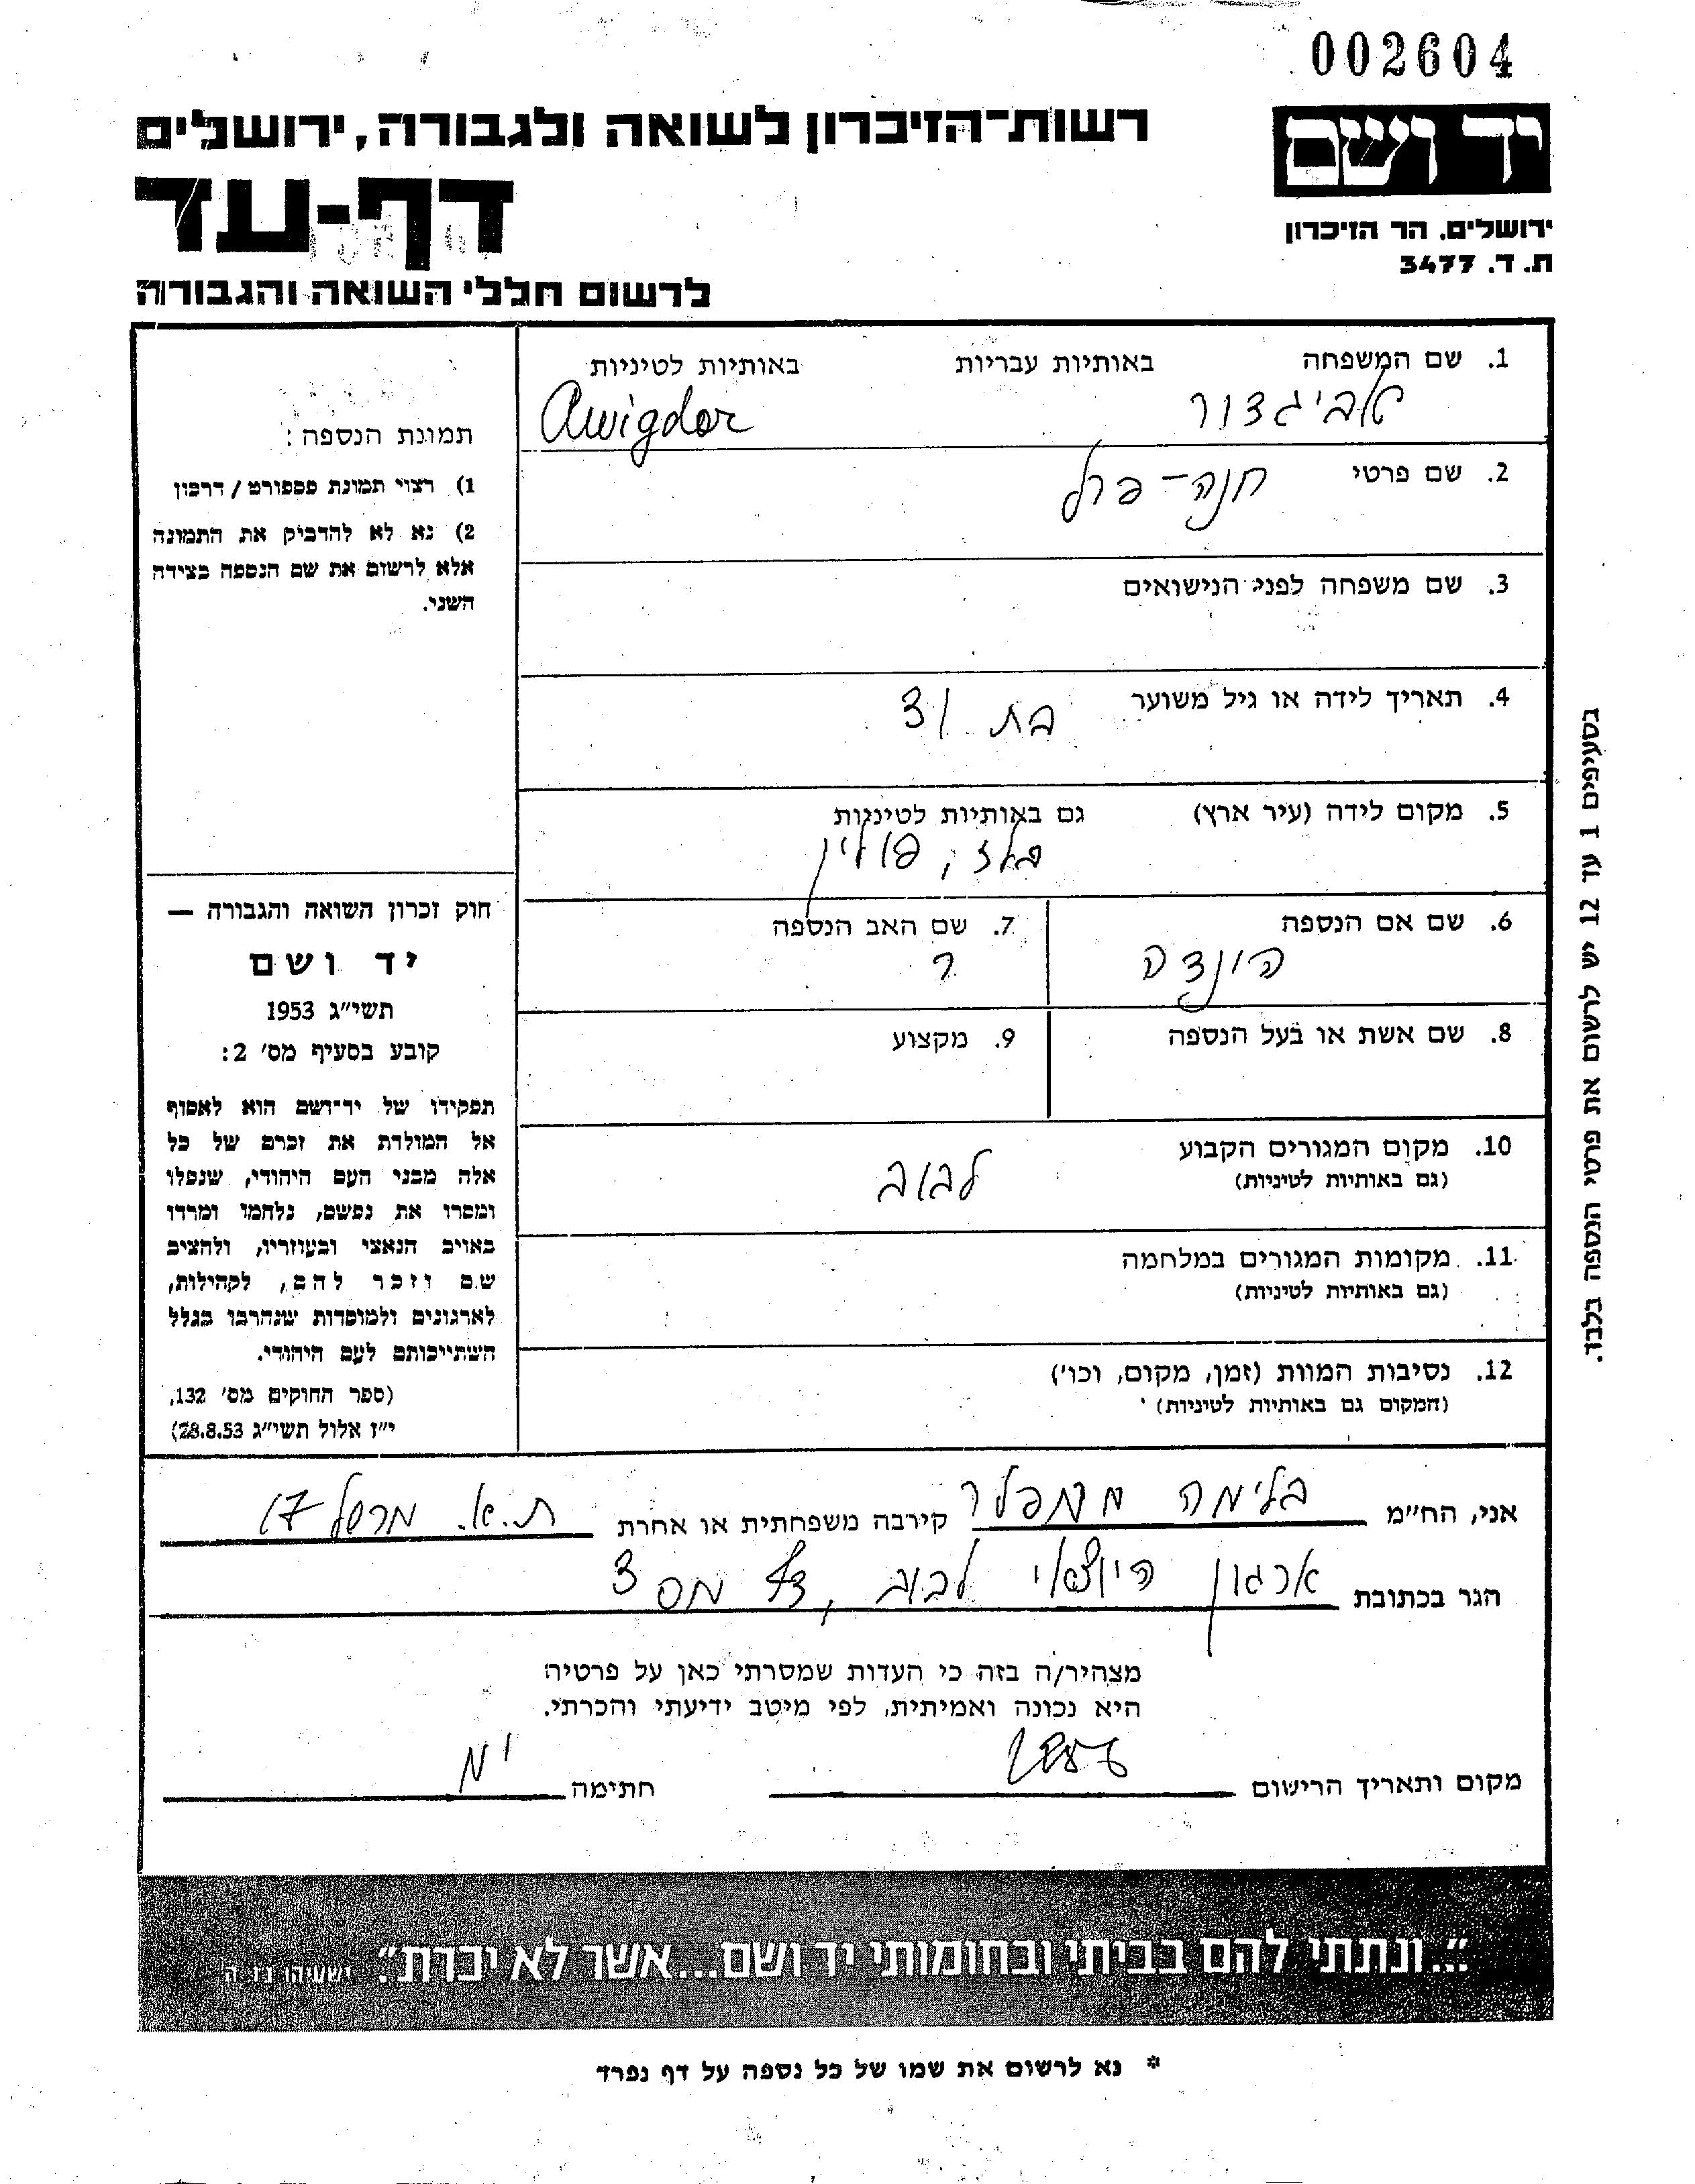 002604
יד ושם
רשות-הזיכרון לשואה ולגבורה, ירושלים
דף-עד
ירושלים, הר הזיכרון
ת. ד. 3477
לרשום חללי השואה והגבורה
1. שם המשפחה באותיות עבריות באותיות לטיניות
אביגדור Awigdor
2. שם פרטי חנה-פרל
3. שם משפחה לפני הנישואים
4. תאריך לידה או גיל משוער בת
5. מקום לידה (עיר ארץ) גם באותיות לטיניות
בלז, פולין
6. שם אם הנספה 7. שם האב הנספה
הינדה
8. שם אשת או בעל הנספה 9. מקצוע
10. מקום המגורים הקבוע
(גם באותיות לטיניות)
לבוב
11. מקומות המגורים במלחמה
(גם באותיות לטיניות)
12. נסיבות המוות (זמן, מקום, וכו')
(המקום גם באותיות לטיניות)
תמונת הנספה:
1) רצוי תמונת פספורט / דרכון
2) נא לא להדביק את התמונה
אלא לרשום את שם הנספה בצידה
השני.
חוק זכרון השואה והגבורה —
יד ושם
תשי"ג 1953
קובע בסעיף מס' 2:
תפקידו של יד-ושם הוא לאסוף
אל המולדת את זכרם של כל
אלה מבני העם היהודי, שנפלו
ומסרו את נפשם, נלחמו ומרדו
באויב הנאצי ובעוזריו, ולהציב
שם וזכר להם, לקהילות,
לארגונים ולמוסדות שנחרבו בגלל
השתייכותם לעם היהודי.
(ספר החוקים מס' 132,
י"ז אלול תשי"ג 28.8.53)
בסעיפים 1 עד 12 יש לרשום את פרטי הנספה בלבד.
אני, הח"מ בלימה קירבה משפחתית או אחרת ת.א. 17
הגר בכתובת ארגון יוצאי לבוב, דף מס 3
מצהיר/ה בזה כי העדות שמסרתי כאן על פרטיה
היא נכונה ואמיתית, לפי מיטב ידיעתי והכרתי.
מקום ותאריך הרישום חתימה
"...ונתתי להם בביתי ובחומותי יד ושם...אשר לא יכרת". ישעיהו נו ה
* נא לרשום את שמו של כל נספה על דף נפרד